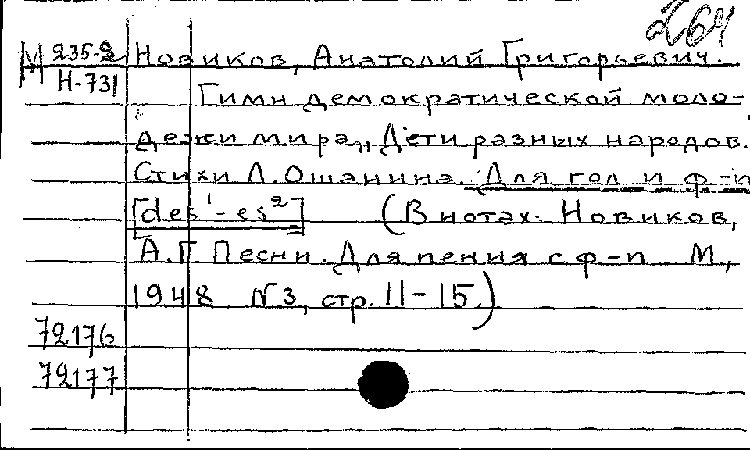 264
М 235-2 Новиков, Анатолий Григорьевич.
Н-731 Гимн демократической моло-
дежи мира „Дети разных народов.
Стихи Л. Ошанина. Для гол и ф-п
[des¹-es²] (В нотах: Новиков,
А.Г. Песни. Для пения с ф-п М,
1948 №3, стр. 11-15.)
72176
72177